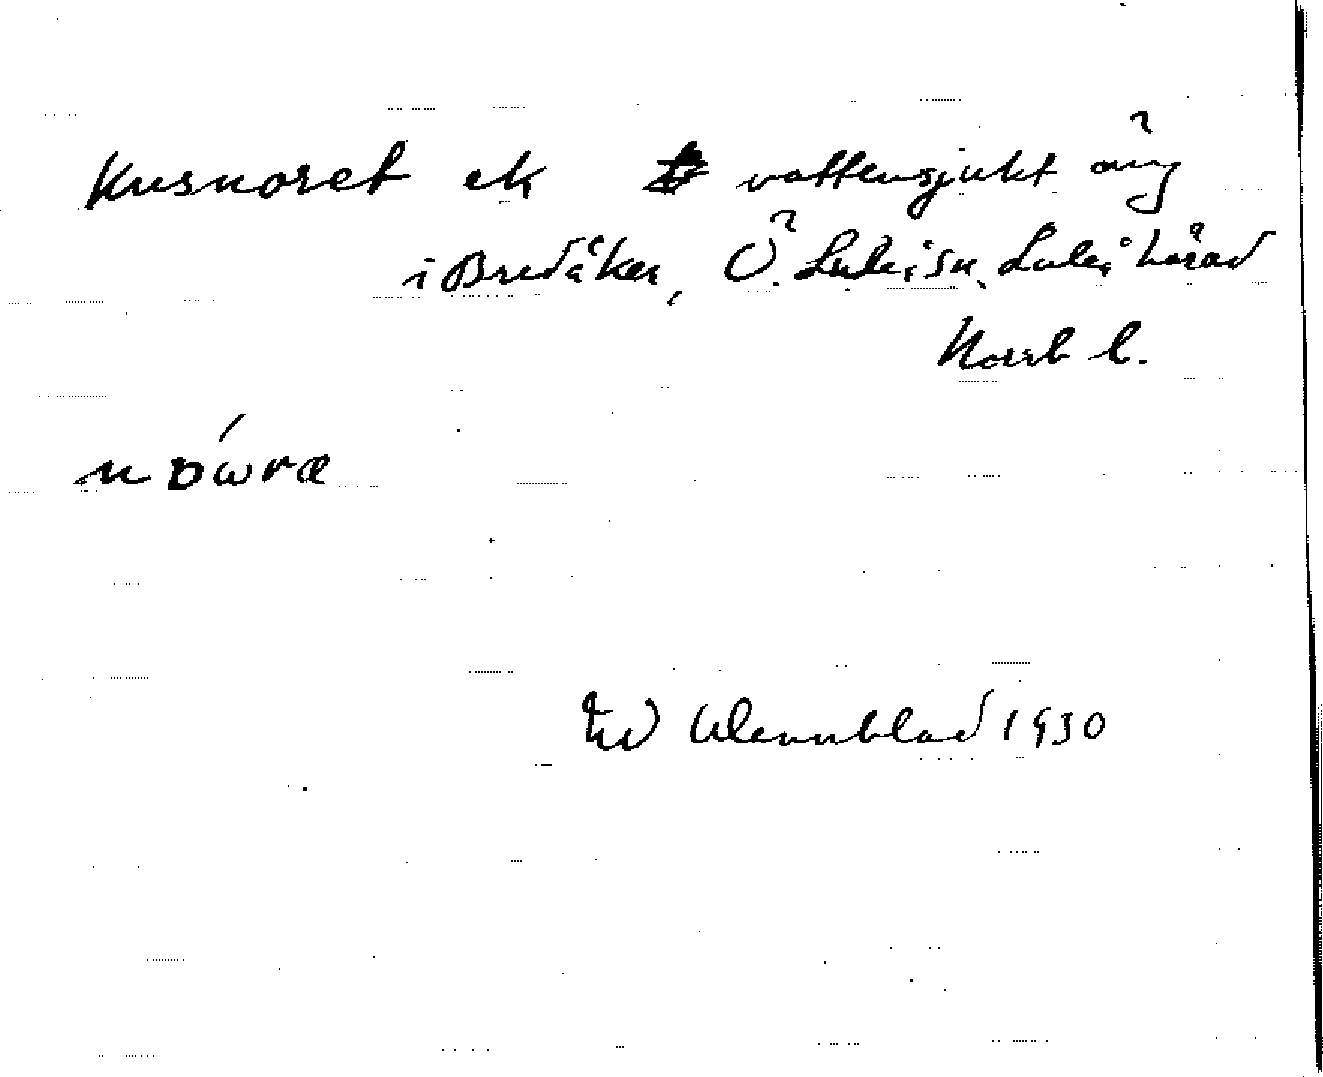 Kusnoret ek vattensjukt äng
i Bredåker, Ö. Luleå sn, Luleå härad
Norrb l.
Wennblad 1930